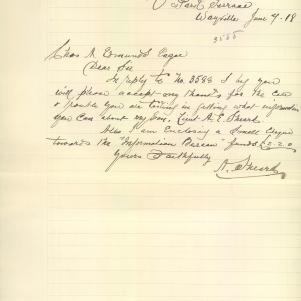 Park Terrace
Wayville June 7. 18
3588
Chas A Edmunds Esqre
Dear Sir
In reply to No. 3588 I beg you
will please accept my thanks for the care
& trouble you are taking in getting what information
you can about my son, Lieut A. E. Sheard
Also I am enclosing a small cheque
towards the "Information Bureau" funds £2-2-0
Yours Faithfully
A. Sheard